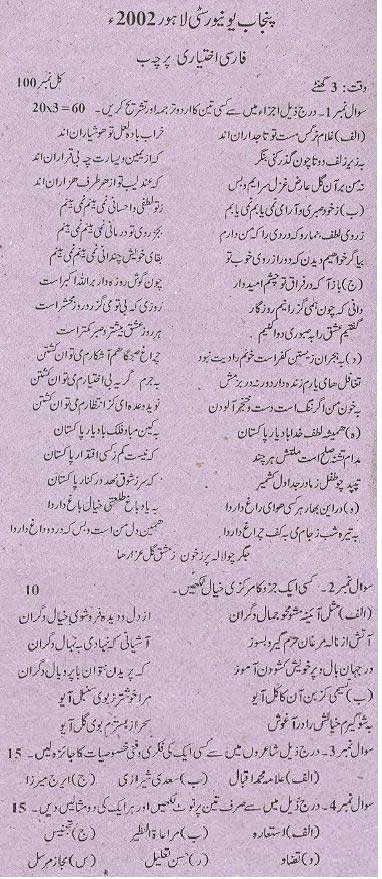 پنجاب یونیورسٹی لاہور 2002ء
فارسی اختیاری پرچہ ب
وقت: 3 گھنٹے کل نمبر 100
سوال نمبر 1۔ درج ذیل اجزاء میں سے کسی تین کا اردو ترجمہ اور تشریح کریں۔ 60=20x3
(الف) غلام نرگس مست تو تاجداران اند خراب بادہ لعل تو ہوشیاران اند
بہ زیر زلف دوتا چون گذر کنی بنگر کہ از یمین و یسارت چہ بی قراران اند
نہ من بر آن گل عارض غزل سرایم و بس کہ عندلیب تو از ہر طرف ہزاران اند
(ب) زخود صبری و آرامی نمی یابم نمی یابم ز تو لطفی و احسانی نمی بینم نمی بینم
ز روی لطف بنما رو کہ دردی را کہ من دارم بجز روی تو درمانی نمی بینم نمی بینم
بیا گر خواہیم دیدن کہ دور از روی خوب تو بقای خویش چندانی نمی بینم نمی بینم
(ج) باز آ کہ در فراق تو چشم امیدوار چون گوش روزہ دار بر اللہ اکبر است
دانی کہ چون ہمی گزرانیم روزگار روزی کہ بی تو می گزرد روز محشر است
گفتیم عشق را بہ صبوری دوا کنیم ہر روز عشق بیشتر و صبر کمتر است
(د) بہ ہجران زیستن کفر است خونم را دیت نبود چراغ صبحگاهم آشکارم می توان کشتن
تغافل ہای یارم زندہ دارد ورنہ در بزمش بہ جرم گریہ بی اختیارم می توان کشتن
بہ خون من اگر ننگ است دست و خنجر آلودن نوید وعدہ ای کز انتظارم می توان کشتن
(ہ) ہمیشہ لطف خدا باد یار پاکستان بہ کین مباد فلک با دیار پاکستان
مدام تشنہ صلح است ملتش ہر چند کہ نیست کم ز کسی اقتدار پاکستان
تپید چو طفل ز مادر جدا دل کشمیر کہ سر ز شوق نهد در کنار پاکستان
(و) در این بہار ہر کسی هوای راغ دارد ا بہ یاد باغ طلعتی خیال باغ دارد ا
بہ تیرہ شب ز جام می بہ کف چراغ دارد ا همین دل من است و بس کہ درد و داغ دارد ا
جگر چو لالہ پر ز خون ز عشق گل عزارها
سوال نمبر 2۔ کسی ایک جزو کا مرکزی خیال لکھیں۔ 10
(الف) مثل آئینہ مشو محو جمال دگران از دل و دیدہ فرو شوی خیال دگران
آتش از نالہ مرغان حرم گیر و بسوز آشیانی کہ نہادی بہ نہال دگران
در جہان بال و پر خویش کشودن آموز کہ پریدن نتوان با پر و بال دگران
(ب) نسیمی کز بن آن کاکل آیو مرا خوشتر ز بوی سنبل آیو
بہ شو گیرم خیالش را در آغوش سحر از بسترم بوی گل آیو
سوال نمبر 3۔ درج ذیل شاعروں میں سے کسی ایک کی فکری و فنی خصوصیات کا جائزہ لیں۔ 15
(الف) علامہ محمد اقبال (ب) سعدی شیرازی (ج) ایرج میرزا
سوال نمبر 4۔ درج ذیل میں سے صرف تین پر نوٹ لکھیں اور ہر ایک کی دو مثالیں دیں۔ 15
(الف) استعارہ (ب) مراعاۃ النظیر (ج) تجنیس
(د) تضاد (ر) حسن تعلیل (س) مجاز مرسل